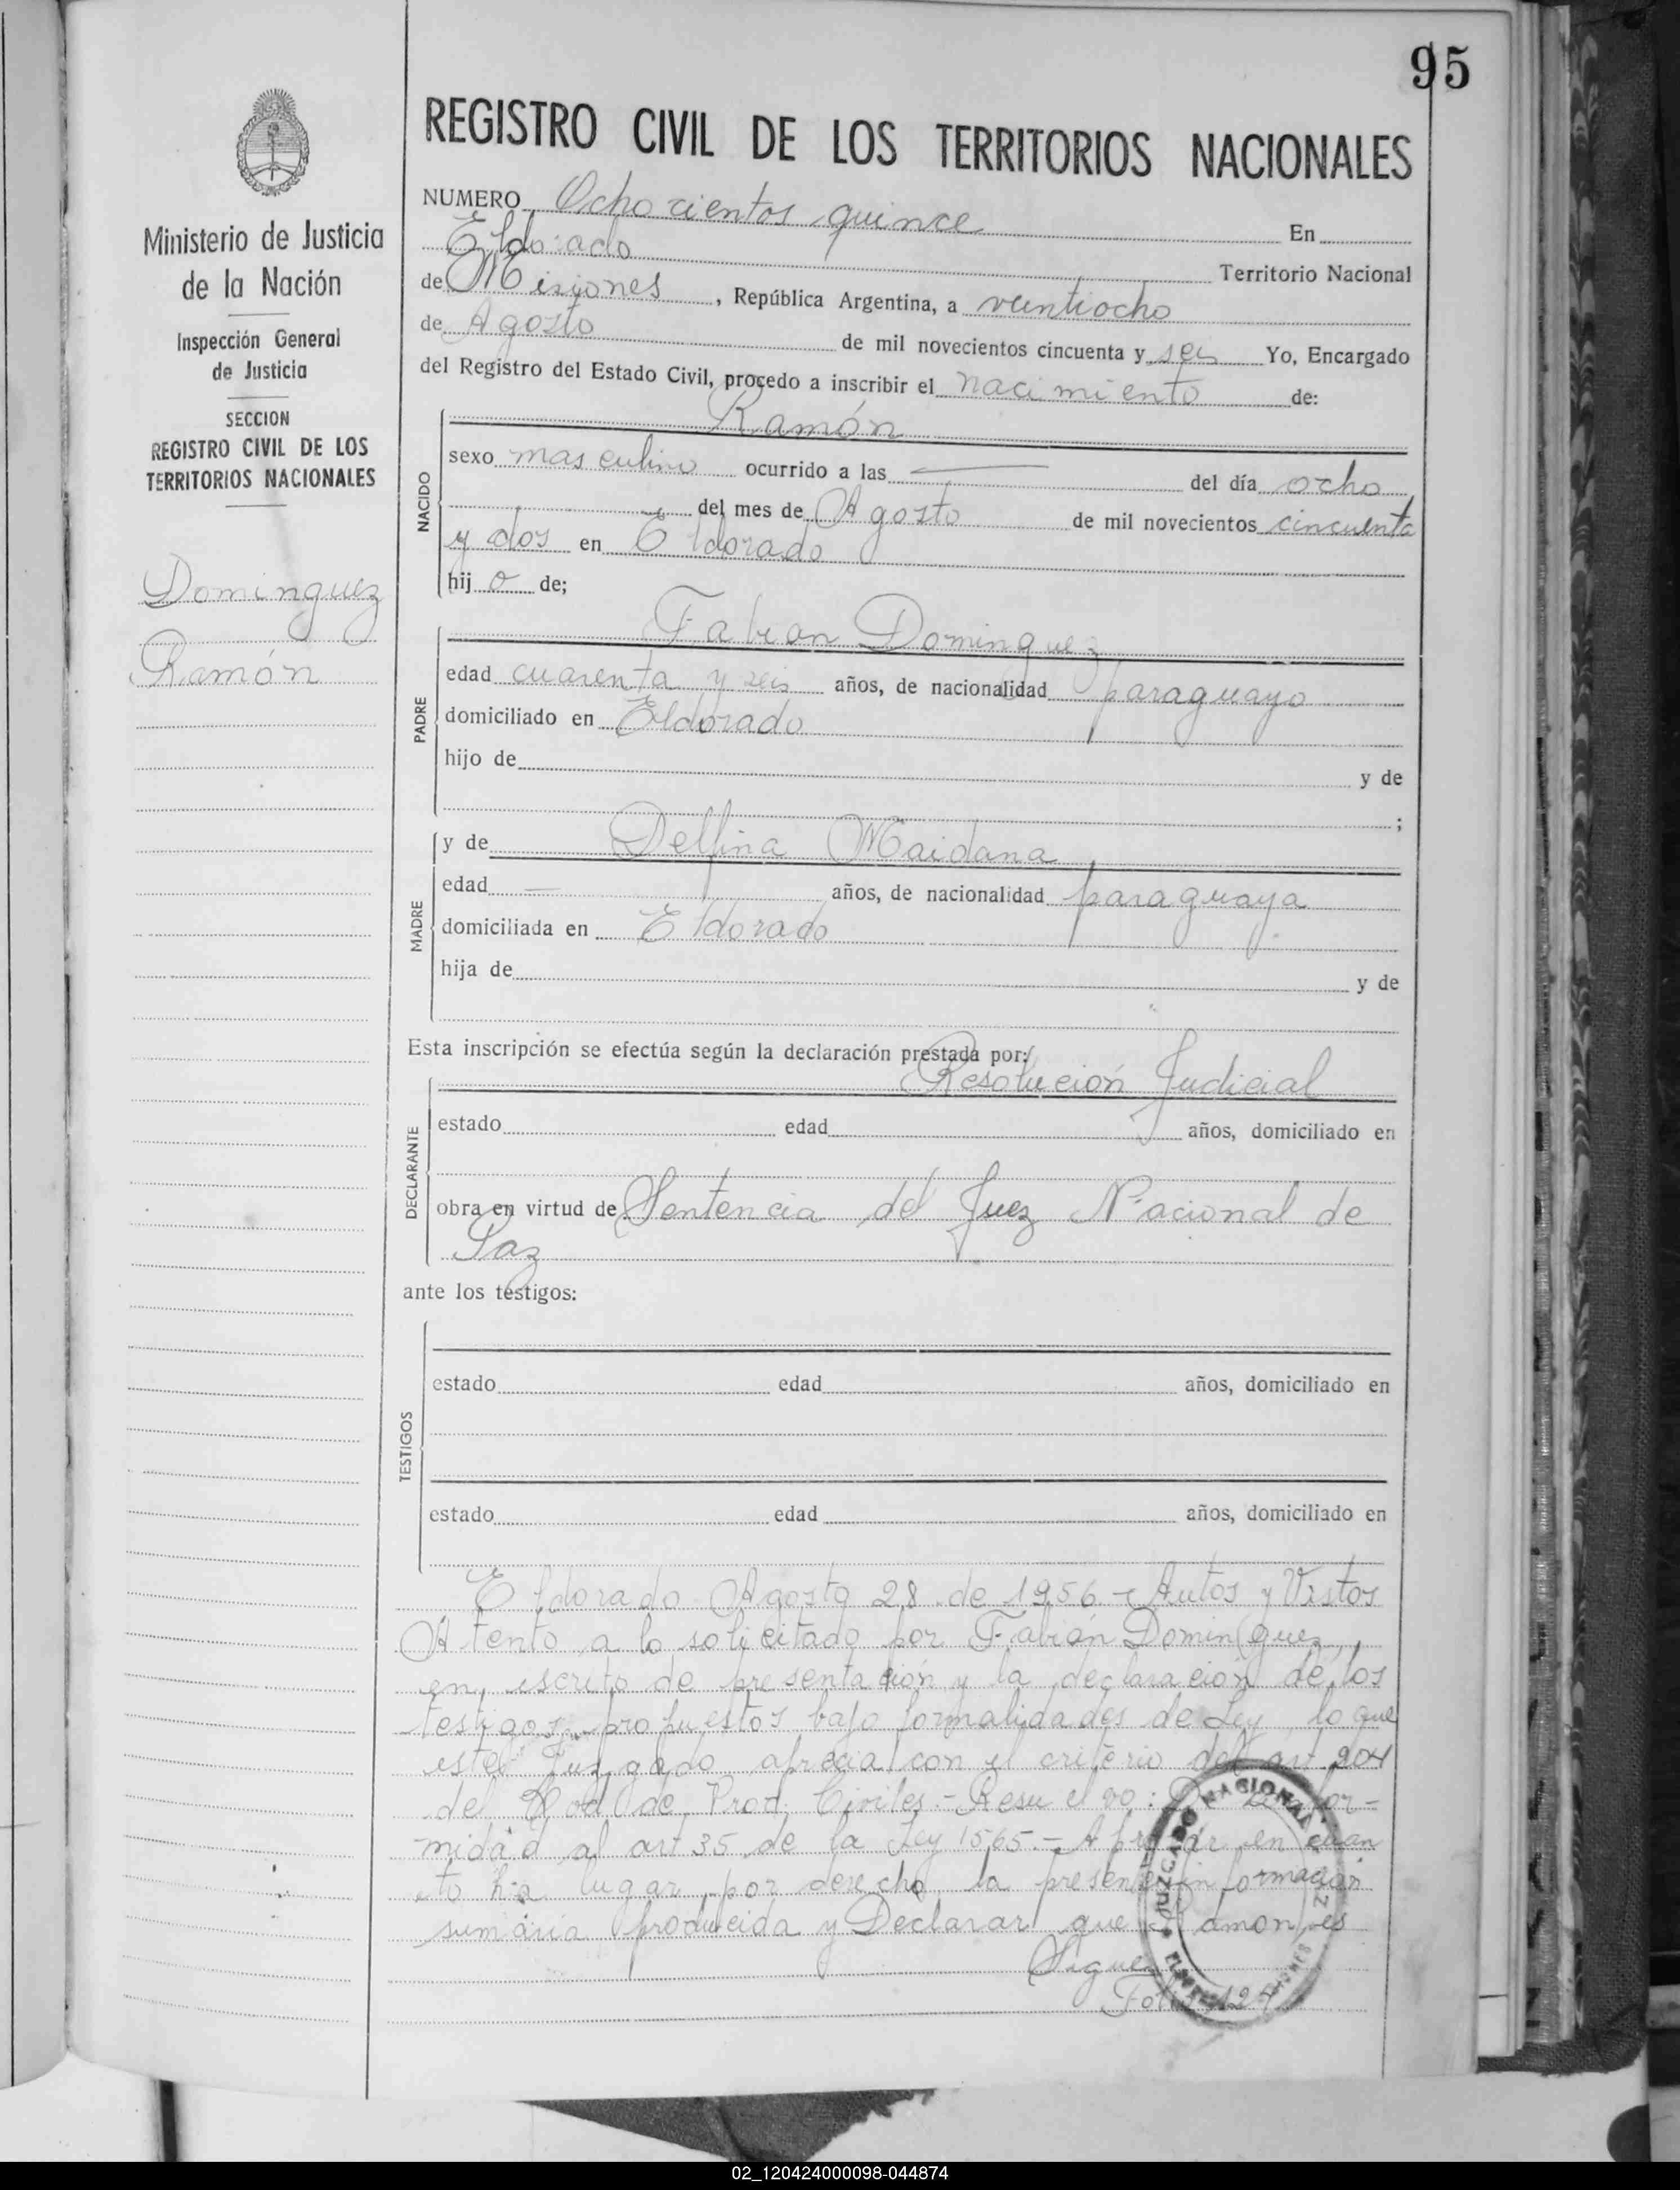 95
Ministerio de Justicia
de la Nación
Inspección General
de Justicia
SECCION
REGISTRO CIVIL DE LOS
TERRITORIOS NACIONALES
Dominguez
Ramón
REGISTRO CIVIL DE LOS TERRITORIOS NACIONALES
NUMERO Ochocientos quince En
Eldorado Territorio Nacional
de Misiones, República Argentina, a veintiocho
de Agosto de mil novecientos cincuenta y seis Yo, Encargado
del Registro del Estado Civil, procedo a inscribir el nacimiento de:
Ramón
NACIDO
sexo masculino ocurrido a las — del día ocho
del mes de Agosto de mil novecientos cincuenta
y dos en Eldorado
hijo de;
PADRE
Fabian Dominguez
edad cuarenta y seis años, de nacionalidad paraguayo
domiciliado en Eldorado
hijo de y de
;
MADRE
y de Delfina Maidana
edad — años, de nacionalidad paraguaya
domiciliada en Eldorado
hija de y de
Esta inscripción se efectúa según la declaración prestada por:
Resolución Judicial
DECLARANTE
estado edad años, domiciliado en
obra en virtud de Sentencia del Juez Nacional de
Paz
ante los testigos:
TESTIGOS
estado edad años, domiciliado en
estado edad años, domiciliado en
Eldorado Agosto 28 de 1956 - Autos y Vistos
Atento a lo solicitado por Fabián Dominguez,
en escrito de presentación y la declaración de los
testigos propuestos bajo formalidades de Ley, lo que
este Juzgado aprecia con el criterio del art 204
del Cod de Prod. Civiles.- Resuelvo:
midad al art 35 de la Ley 1565.- Aprobar en cuan
to ha lugar por derecho la presente información
sumaria producida y Declarar que Ramon es
Sigue
Folio
JUZGADO NACIONAL
02_120424000098-044874